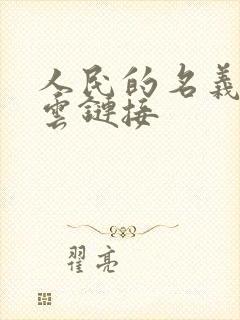 人民的名義
雲鏈接
翟亮